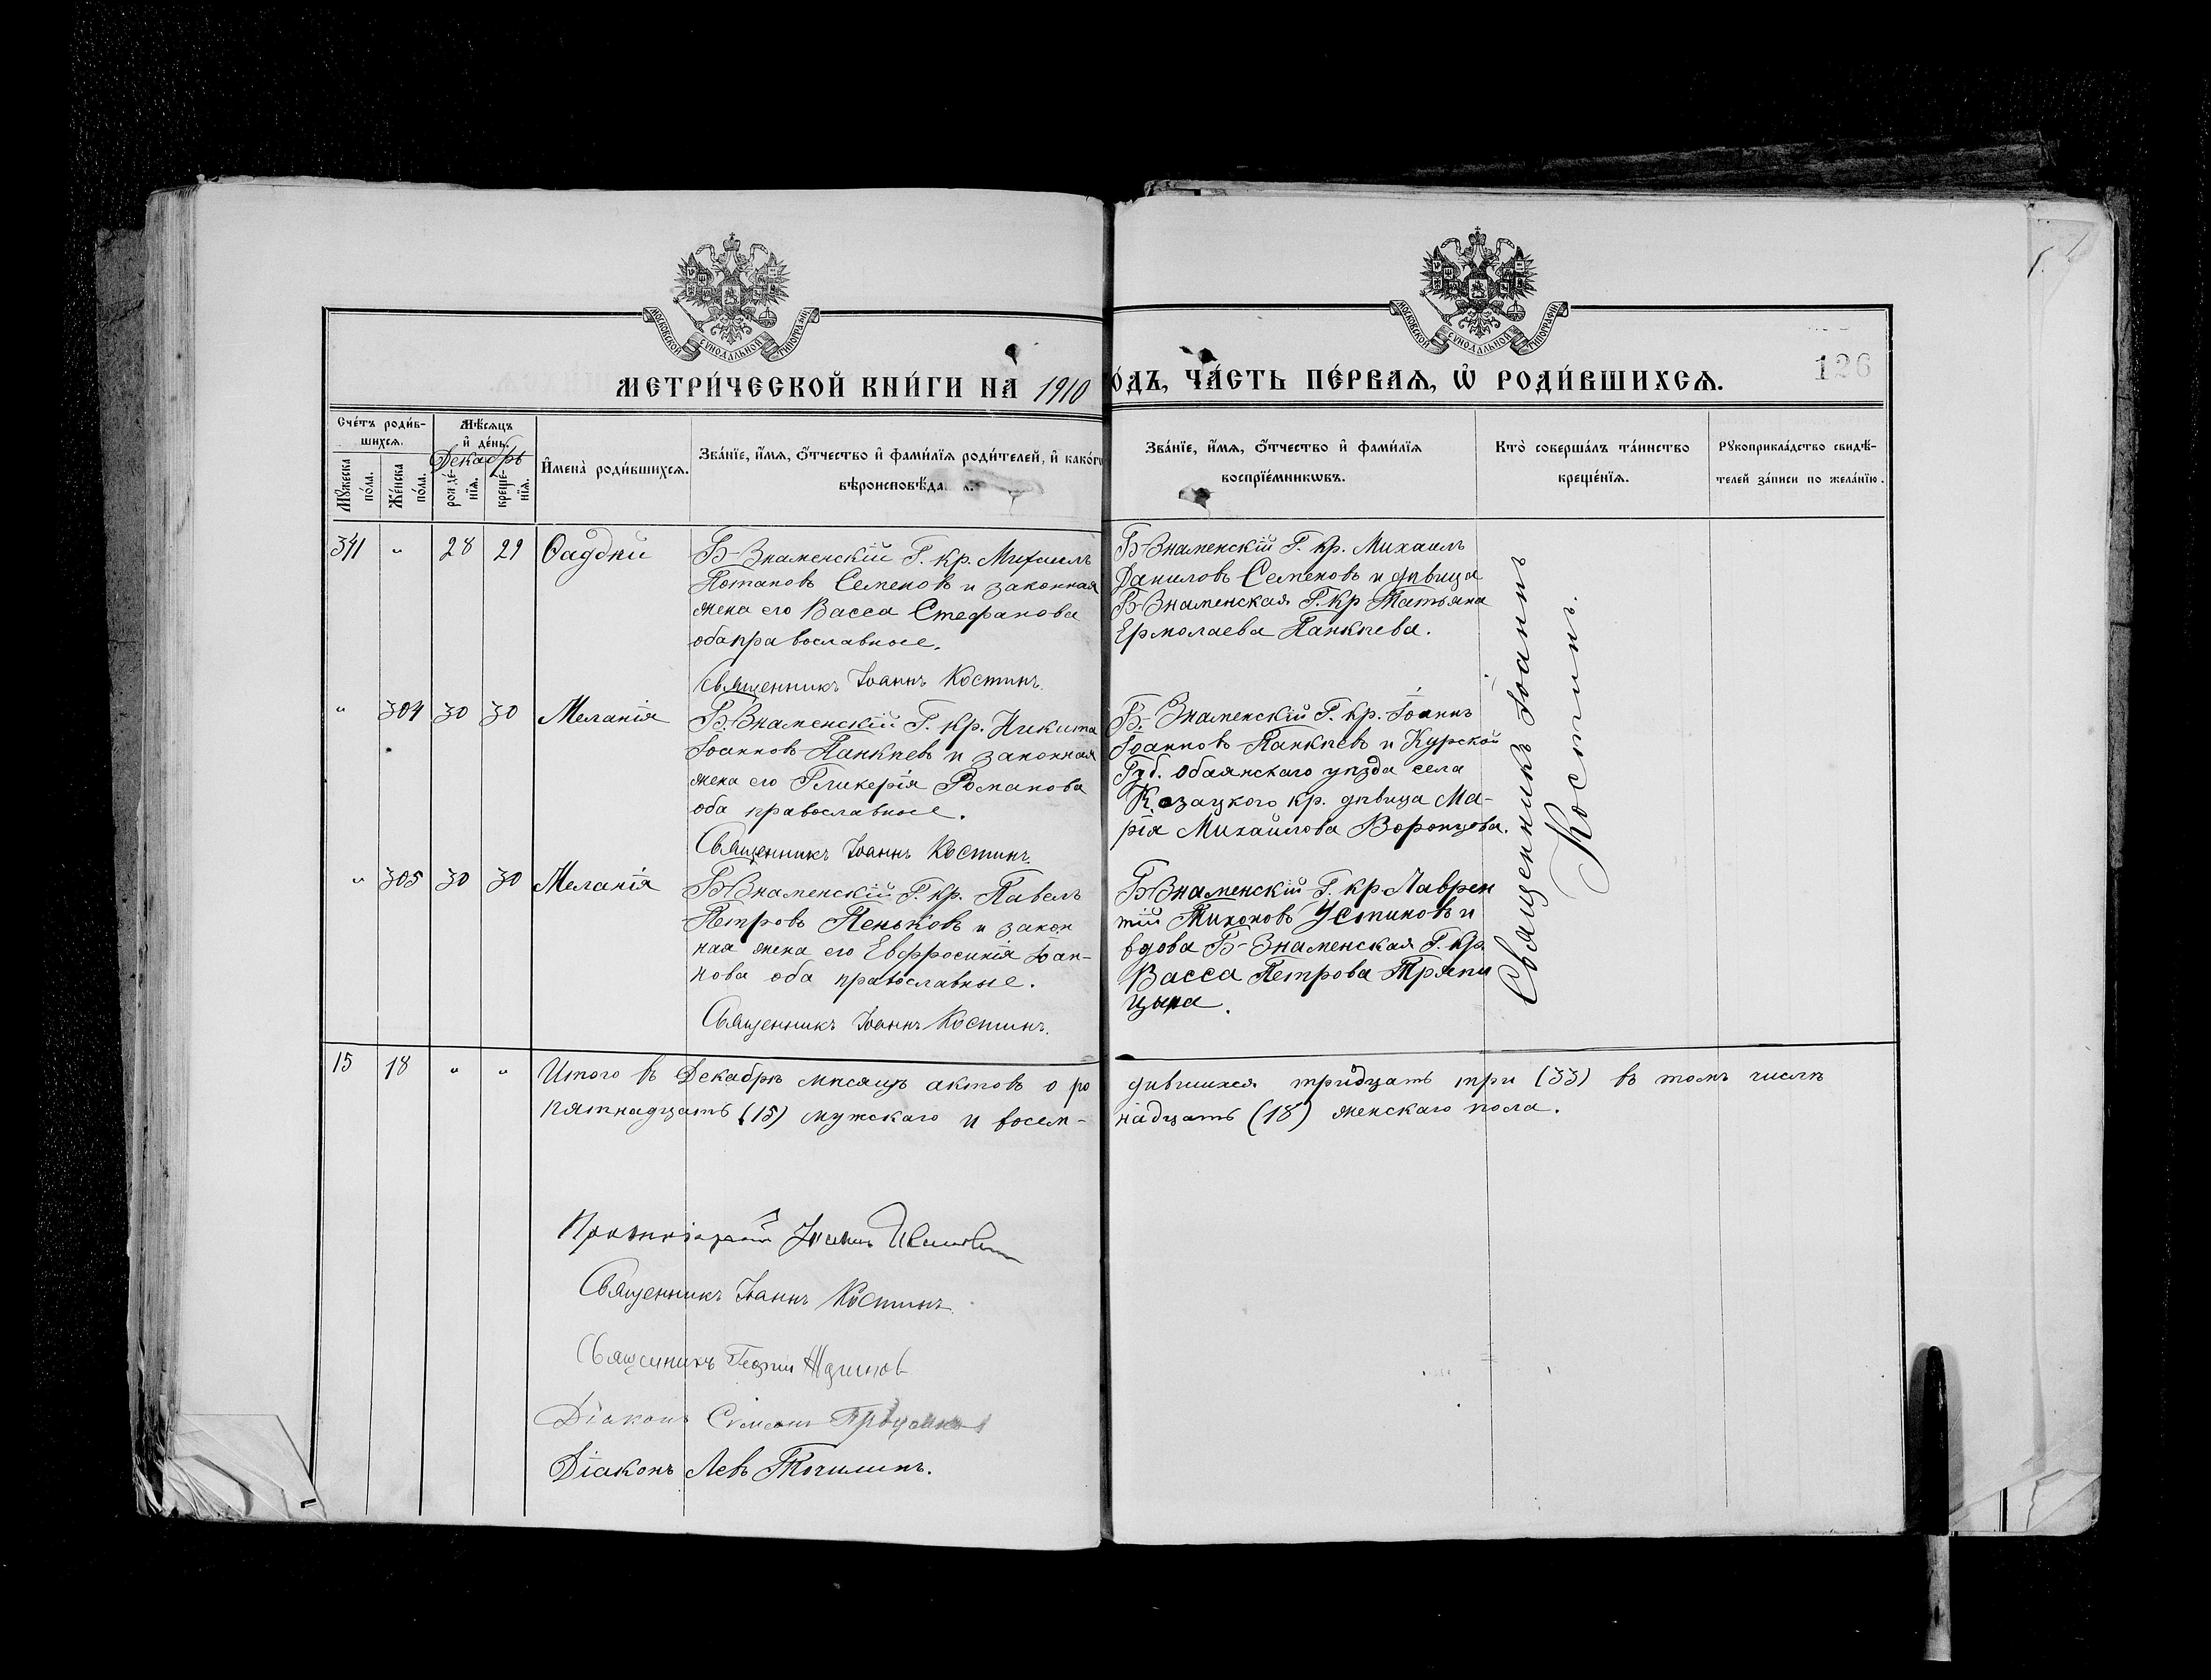 МОСКОВСКОЙ СѴНОДАЛЬНОЙ ТИПОГРАФІИ
МОСКОВСКОЙ СѴНОДАЛЬНОЙ ТИПОГРАФІИ
126
МЕТРИ́ЧЕСКОЙ КНИ́ГИ НА̀ 1910
ОДЪ, ЧА́СТЬ ПЕ́РВАѦ, Ѡ РОДИ́ВШИХСѦ.
Сче́тъ роди́в-
шихсѧ.
Мꙋжеска по́ла.
Же́нска по́ла.
Мѣ́сѧцъ
и҆ де́нь.
Декабрь
рожде́-
нїѧ.
креще́-
нїѧ.
И҆мена̀ роди́вшихсѧ.
Зва́нїе, и҆́мѧ, ѻ҆́тчество и҆ фами́лїѧ роди́телей, и҆ како́гѡ
вѣроисповѣ́да
Зва́нїе, и҆́мѧ, ѻ҆́тчество и҆ фами́лїѧ
воспрїе́мникѡвъ.
Кто̀ соверша́лъ та́инство
креще́нїѧ.
Рꙋкоприкла́дство свидѣ́-
телей за́писи по жела́нїю.
341 " 28 29 Фаддей
Б-Знаменскій Г. кр. Михаилъ
Потаповъ Семеновъ и законная
жена его Васса Стефанова
оба православные.
Священникъ Іоаннъ Костинъ.
Б-Знаменскій Г. кр. Михаилъ
Даниловъ Семеновъ и дѣвица
Б-Знаменская Г. кр Татьяна
Ермолаева Панкѣева.
" 304 30 30 Меланія
Б.-Знаменскій Г. кр. Никита
Іоанновъ Панкѣевъ и законная
жена его Гликерія Романова
оба православные.
Священникъ Іоаннъ Костинъ.
Б.-Знаменскій Г. кр. Іоаннъ
Іоанновъ Панкѣевъ и Курской
Губ. Обаянскаго уѣзда села
Козацкого кр. дѣвица Ма-
рія Михайлова Воронцова.
" 305 30 30 Меланія
Б-Знаменскій Г. кр. Павелъ
Петровъ Пеньковъ и закон
ная жена его Евфросинія Іоан-
нова оба православные.
Священникъ Іоаннъ Костинъ.
Б-Знаменскій Г. кр Лаврен
тій Тихоновъ Устиновъ и
вдова Б-Знаменская Г. кр.
Васса Петрова Тряпи
цына.
Священникъ Іоаннъ
Костинъ.
15 18 " "
Итого въ Декабрѣ мѣсяцѣ актовъ о ро
дившихся тридцать три (33) въ томъ числѣ
пятнадцать (15) мужскаго и восем-
надцать (18) женскаго пола.
Священникъ Іоаннъ Костинъ
Священникъ Георгій
Діаконъ Симеонъ
Діаконъ Левъ Точилинъ.